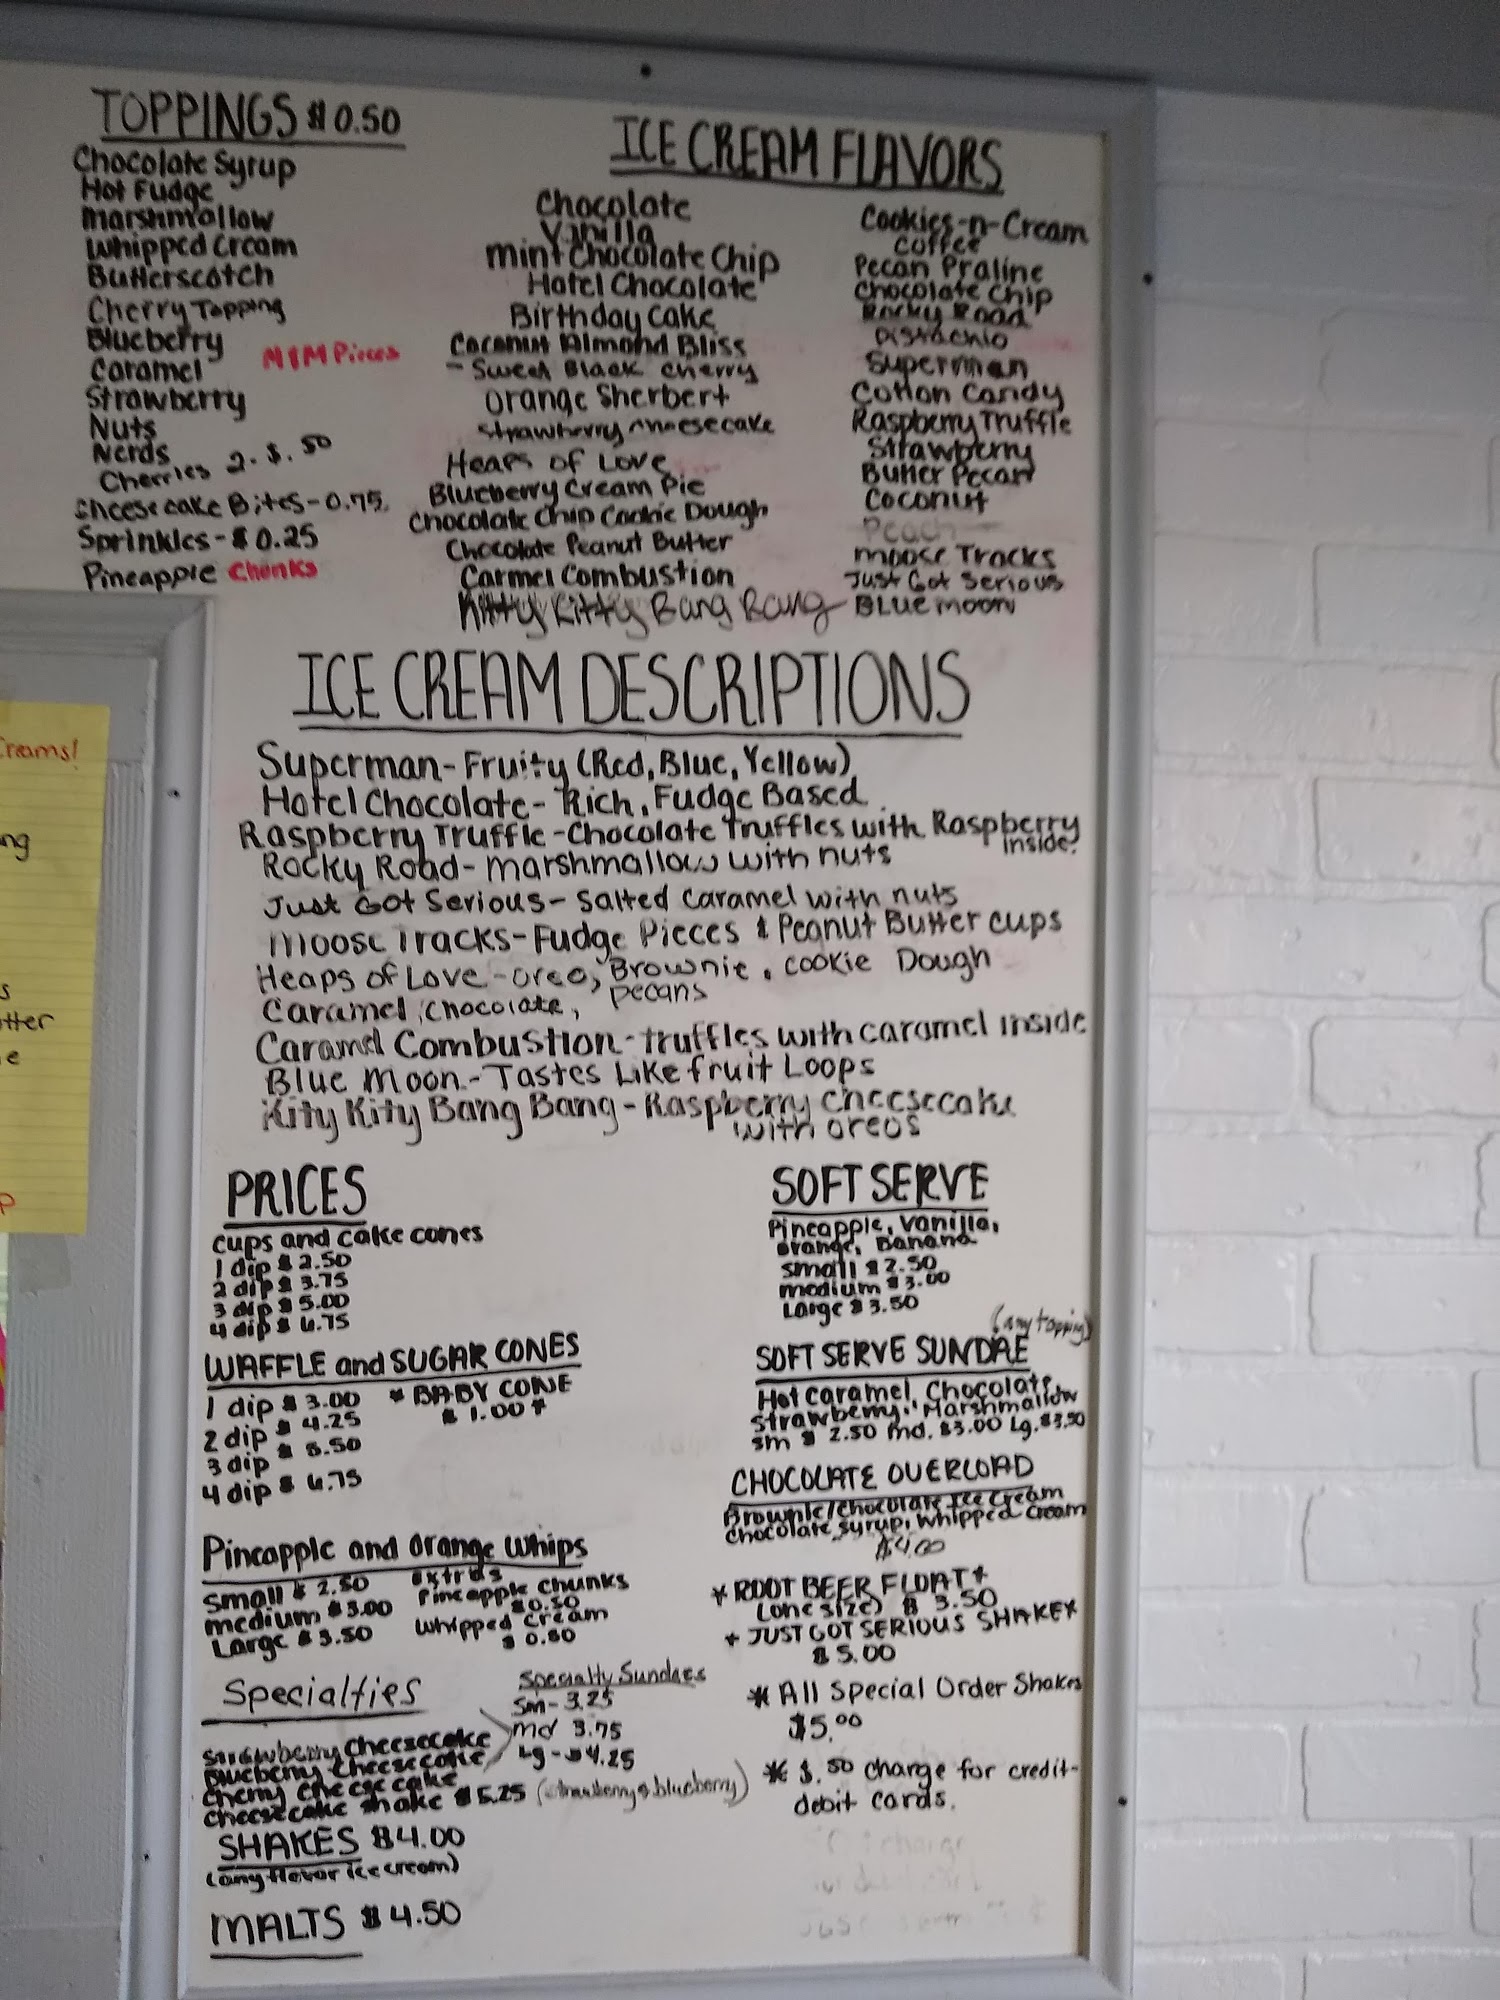 TOPPINGS $0.50
Chocolate Syrup
Hot Fudge
Marshmallow
Whipped Cream
Butterscotch
Cherry Topping
Blueberry
M&M Pieces
Caramel
Strawberry
Nuts
Nerds
Cherries 2-$.50
Cheesecake Bites-0.75
Sprinkles-$0.25
Pineapple Chunks
ICE CREAM FLAVORS
Chocolate
Vanilla
Mint Chocolate Chip
Hotel Chocolate
Birthday Cake
Coconut Almond Bliss
- Sweet Black Cherry
Orange Sherbert
Strawberry Cheesecake
Heaps of Love
Blueberry Cream Pie
Chocolate Chip Cookie Dough
Chocolate Peanut Butter
Carmel Combustion
Kitty Kitty Bang Bang
Cookies-n-Cream
Coffee
Pecan Praline
Chocolate Chip
Rocky Road
Pistachio
Superman
Cotton Candy
Raspberry Truffle
Strawberry
Butter Pecan
Coconut
Peach
Moose Tracks
Just Got Serious
Blue moon
ICE CREAM DESCRIPTIONS
Superman-Fruity (Red, Blue, Yellow)
Hotel Chocolate-Rich, Fudge Based
Raspberry Truffle-Chocolate Truffles with Raspberry
inside.
Rocky Road-marshmallow with nuts
Just Got Serious-Salted Caramel with nuts
Moose Tracks-Fudge Pieces & Peanut Butter cups
Heaps of Love-oreo, Brownie, cookie Dough
Caramel, Chocolate, pecans
Caramel Combustion-truffles with caramel inside
Blue Moon-Tastes Like fruit Loops
Kity Kity Bang Bang-Raspberry cheesecake
with oreos
PRICES
cups and cake cones
1 dip $2.50
2 dip $3.75
3 dip $5.00
4 dip $6.75
WAFFLE and SUGAR CONES
1 dip $3.00
2 dip $4.25
3 dip $5.50
4 dip $6.75
* BABY CONE
$1.00*
Pineapple and Orange Whips
Small $2.50
medium $3.00
Large $3.50
extras
Pineapple chunks
$0.50
Whipped cream
$0.50
Specialties
Strawberry Cheesecake
Blueberry Cheesecake
Cherry Cheesecake
Cheesecake Shake $5.25 (strawberry & blueberry)
Specialty Sundaes
Sm-3.25
md 3.75
Lg-$4.25
SHAKES $4.00
(any flavor ice cream)
MALTS $4.50
SOFT SERVE
Pineapple, Vanilla,
Orange, Banana
Small $2.50
medium $3.00
Large $3.50
(any topping)
SOFT SERVE SUNDAE
Hot Caramel, Chocolate,
Strawberry, Marshmallow
sm $2.50 md. $3.00 Lg. $3.50
CHOCOLATE OVERLOAD
Brownie/Chocolate Ice Cream
Chocolate syrup, whipped cream
$4.00
* ROOT BEER FLOAT *
(one size) $3.50
* JUST GOT SERIOUS SHAKE*
$5.00
* All Special Order Shakes
$5.00
* $.50 charge for credit-
debit cards.
Creams!
ng
s
tter
e
P